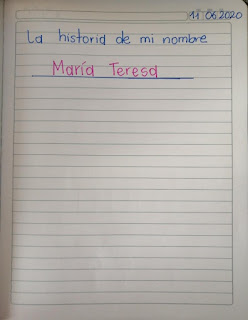 11 06.2020
La historia de mi nombre
María Teresa